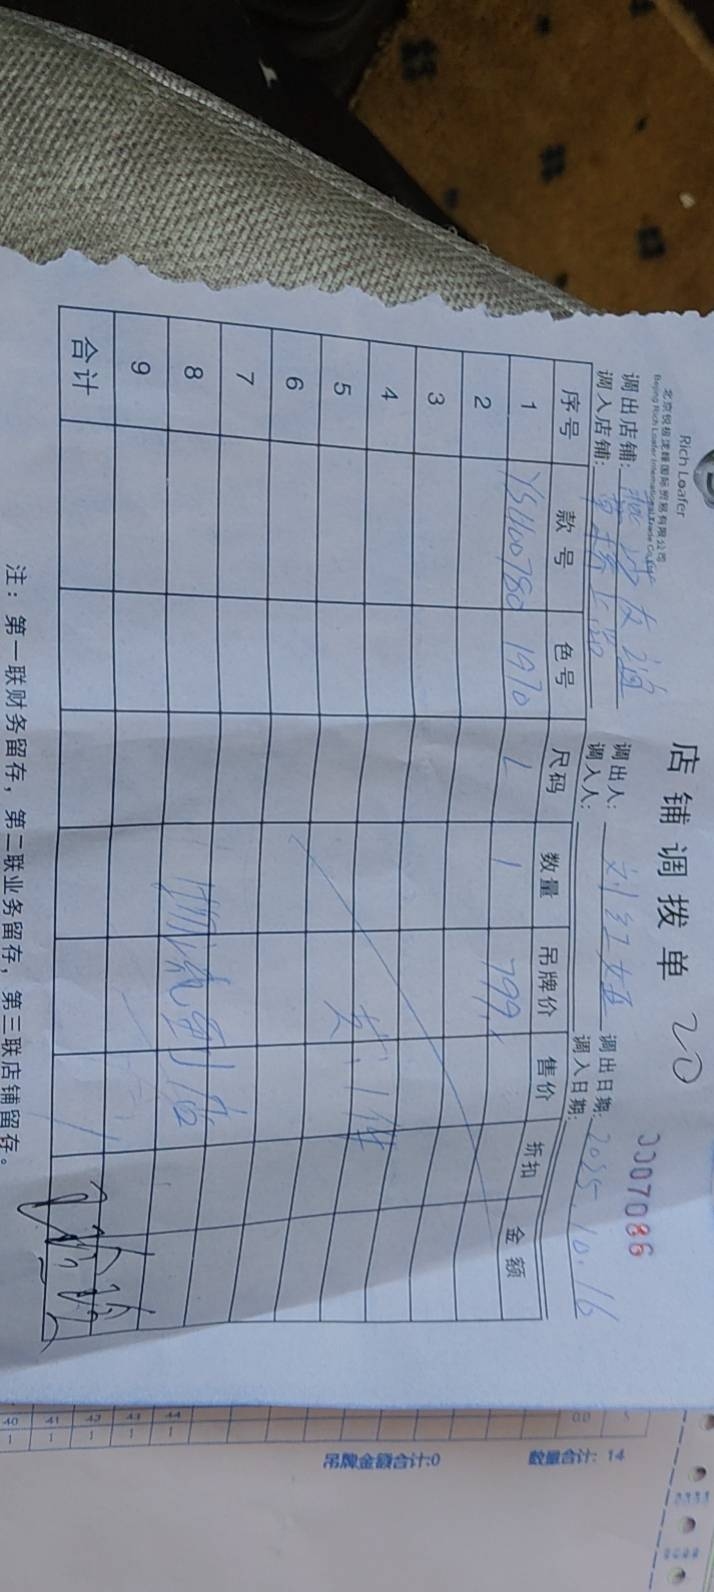 Rich Loafer
北京悦极流蜂国际贸易有限公司
店铺调拨单 20
0007086
调出店铺: 调出人: 刘红 调出日期: 2025.10.16
调入店铺: 调入人: 调入日期:
序号 款号 色号 尺码 数量 吊牌价 售价 折扣 金额
1 YSU00780 1970 L 1 799
2
3
4
5 共1件
6
7
8 到店
9
合计
注：第一联财务留存，第二联业务留存，第三联店铺留存。
数量合计: 14
吊牌金额合计:0
44
43
42
41
40